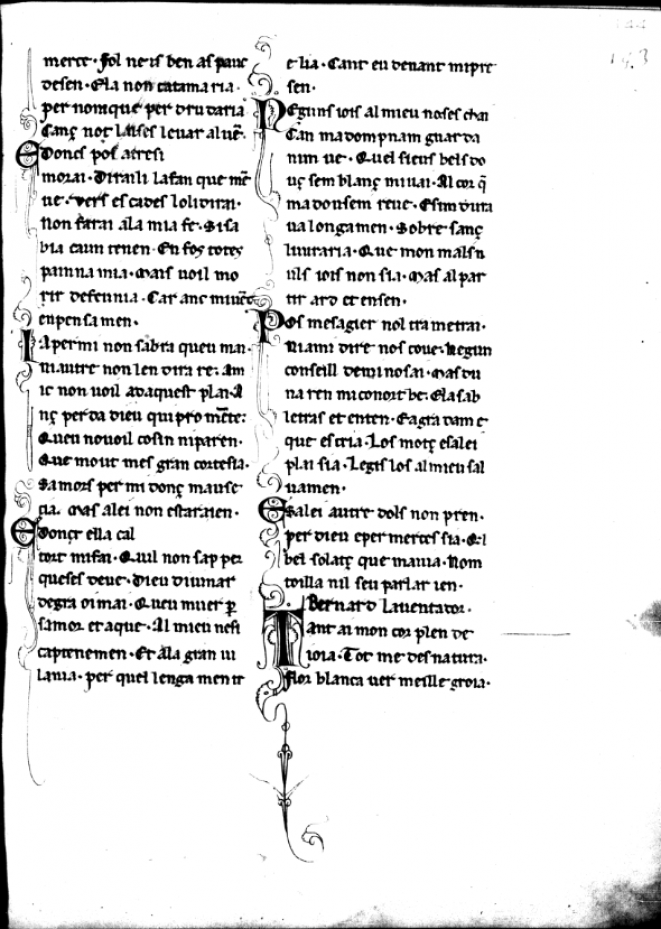 merce · fol neis ben as pauc
de sen · Ela non catamaria ·
per nom que per drudaria
Canç noç laises levar al uẽ ·
E doncs pos atresi
morai · Dirai li lafan que mẽ
ue · Vers es cades lo li dirai ·
Non farai ala mia fe · Si sa
bia caun tenen · En fos totes
painna mia · Mais uoil mo
rir de fennia · Car anc
en pensamen ·
Ia per mi non sabra queu mai ·
Ni autre non len dira re · Am
ic non uoil adaquest plai · A
nç perda dieu qui pro mẽte :
Queu no uoil cosin ni paren ·
Que mout mes gran cortesia ·
Samors per mi donç mause
cia · Mas a lei non estara ien ·
E donçs ella cal
tort mi fai · Quil non sap per
queses deue · Dieu diuinar
degra oimai · Queu muer ꝑ
samor et a que · Al mieu nesi
captenemen · Et ala gran ui
lania · per quel lenga men tr
e lia · Cant eu denant mi pre
sen ·
Neguns iois al mieu no ses chai
Can ma dompnam guarda
nim ue · Quel sieus bels do
uç semblanç mi uai · Al cor q̃
ma dousem reue · Esim dura
ua longamen · Sobre sanç
liuraria · Que mon mals n
uls iois non sia · Mas al par
tir ard et ensen ·
Pos mesagier nol trametrai ·
Ni a mi dire nos coue · Negun
conseill de mi no sai · Mas du
na ren mi conort be · Ela sab
letras et enten · E agradam e
que escria · Los motç e sa lei
plai sia · Legis los al mieu sal
uamen ·
E sa lei autre dols non pren ·
per dieu e per merces sia · Qel
bel solatç que mauia · Nom
toilla nil seu parlar ien ·
Bernard Lauentador ·
Tant ai mon cor plen de
ioia · Tot me desnatura ·
flor blanca uermeille groia ·